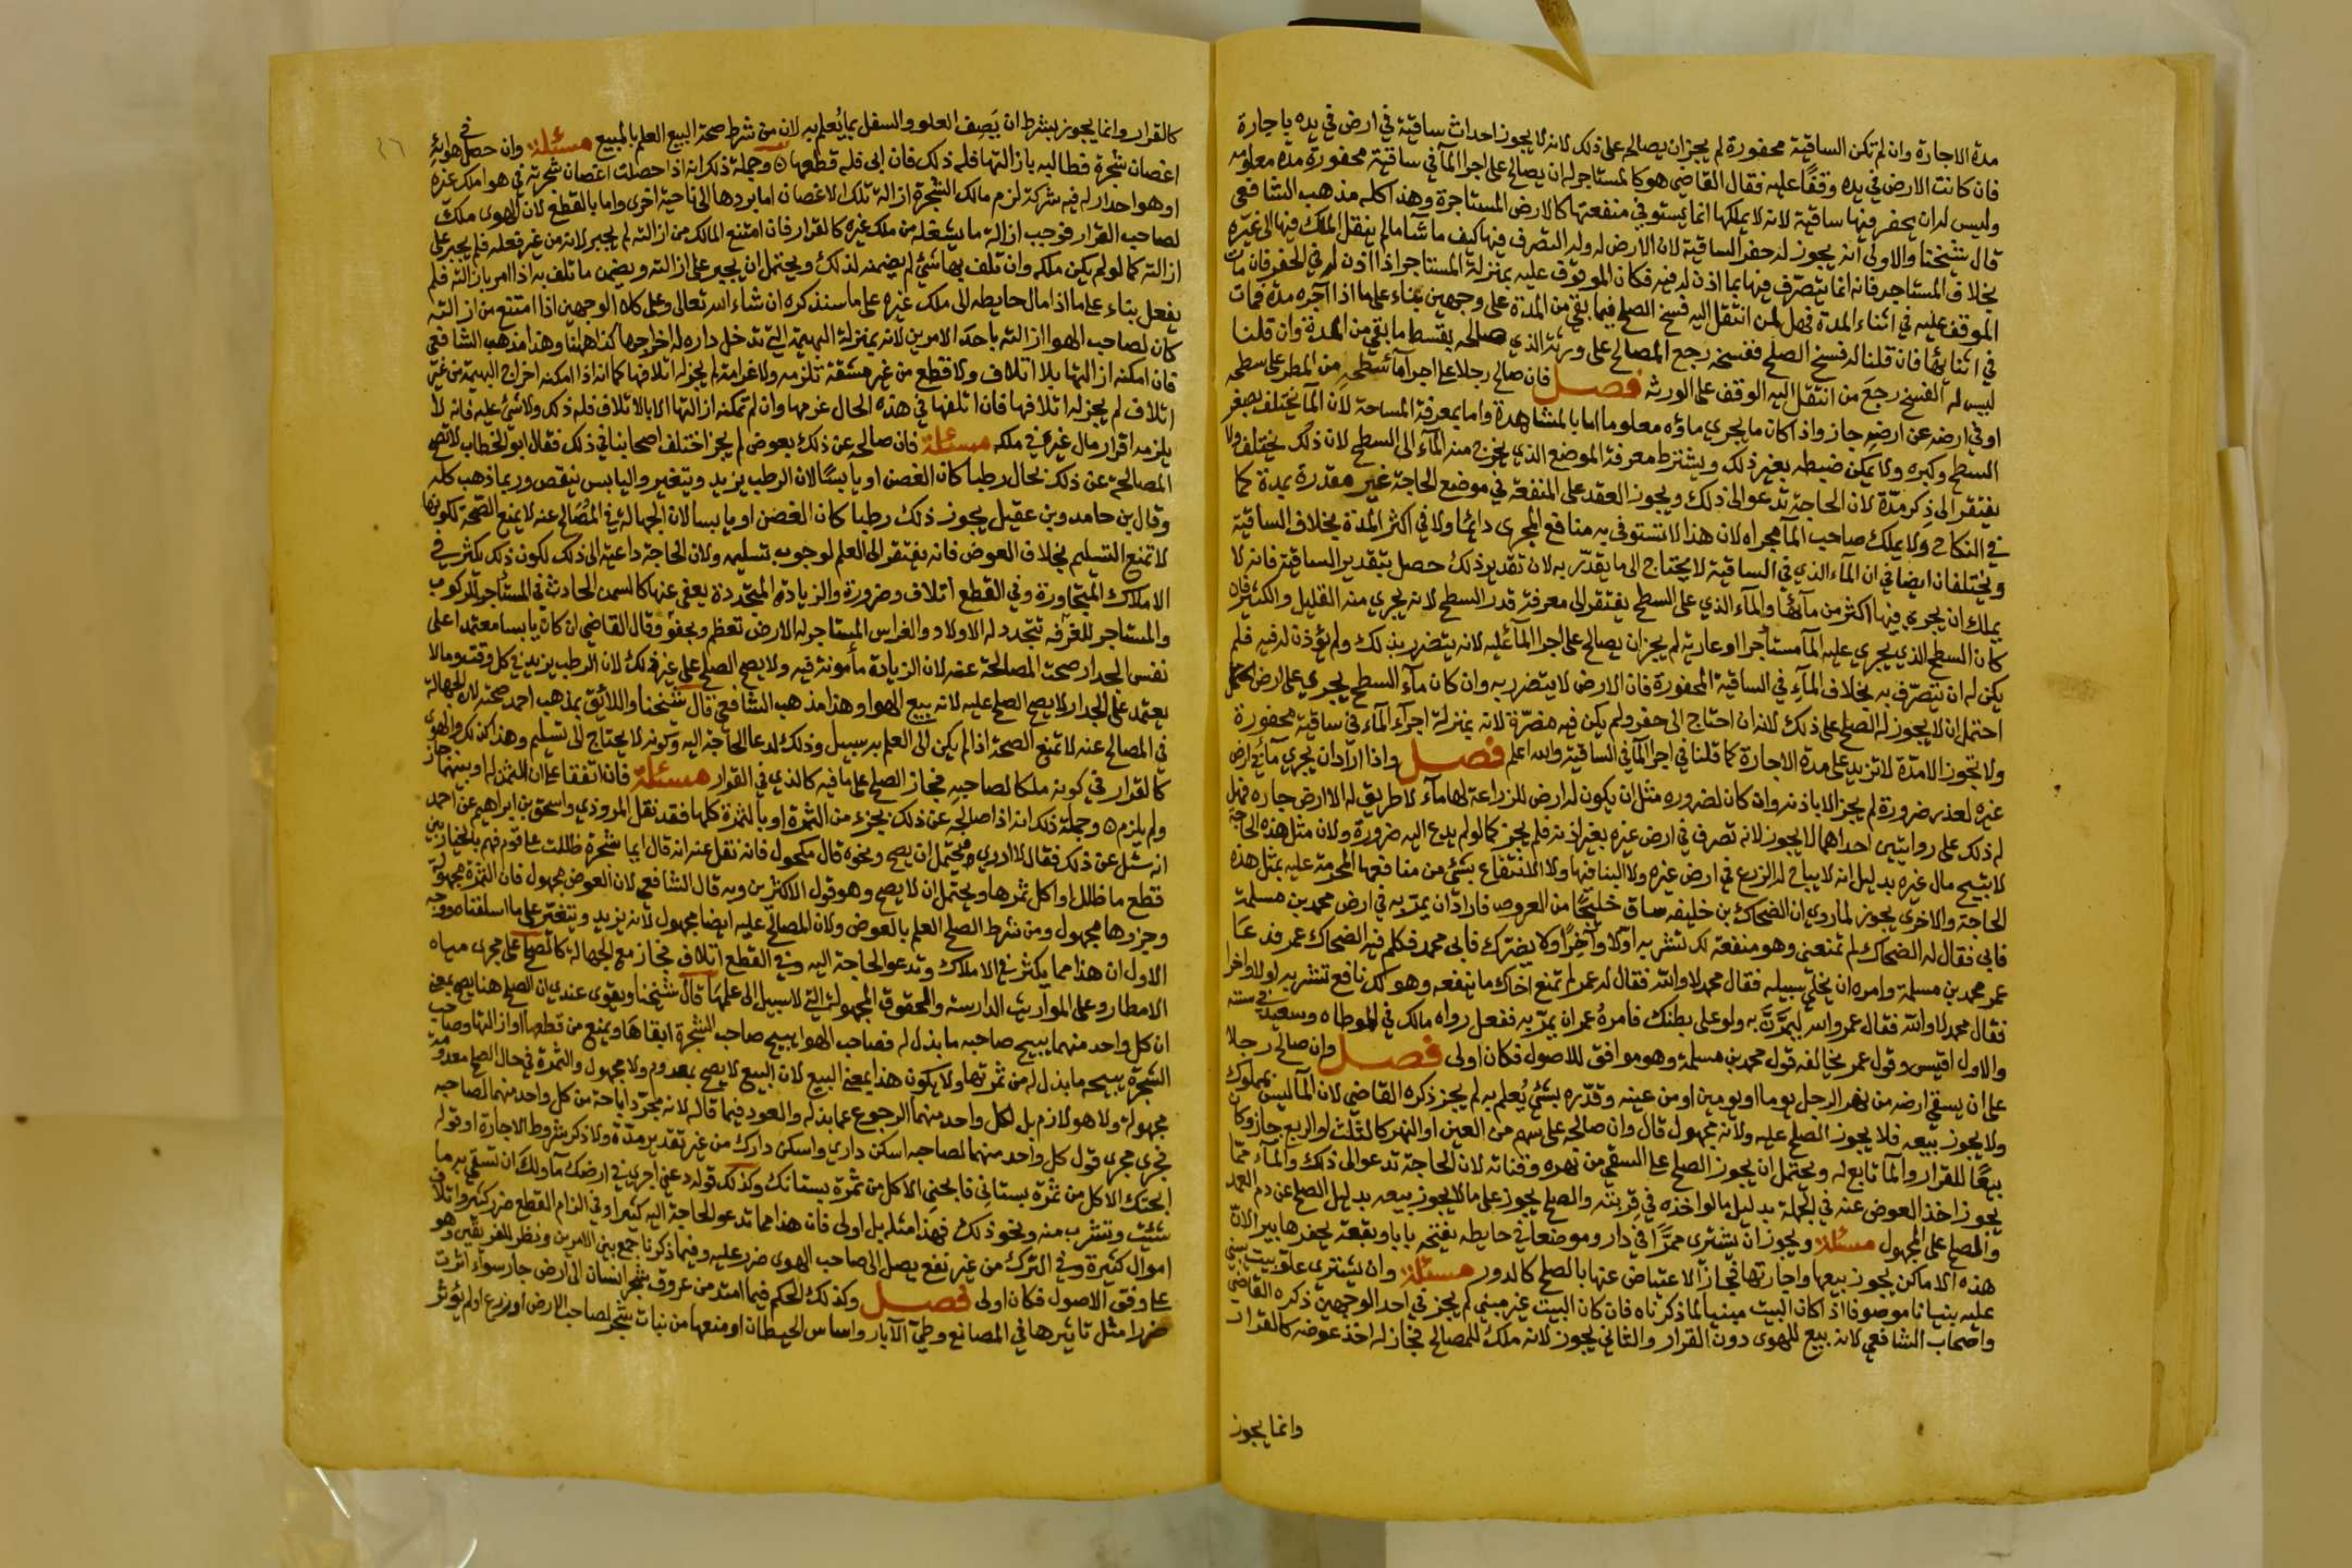 مدة الاجارة وان لم تكن الساقية محفورة لم يجز ان يصالحه على ذلك لانه لا يجوز احداث ساقية في ارض في يده باجارة
فان كانت الارض في يده وقفًا عليه فقال القاضي هو كالمستاجر له ان يصالح على اجرا المآ في ساقية محفورة مدة معلومه
وليس له ان يحفر فيها ساقية لانه لا يملكها انما يستوفي منفعتها كالارض المستاجرة وهذا كله مذهب الشافعي
قال شيخنا والاولى انه يجوز له حفر الساقية لان الارض له وله التصرف فيها كيف ما شآ ما لم ينقل الملك فيها الى غيره
بخلاف المستاجر فانه انما يتصرف فيها بما اذن له فيه فكان الموقوف عليه بمنزلة المستاجر اذا اذن له في الحفر فان مات
الموقف عليه في اثناء المدة فهل لمن انتقل اليه فسخ الصلح فيما بقي من المدة على وجهين بناء على ما اذا آجره مدة فمات
في اثنائها فان قلنا له فسخ الصلح ففسخه رجع المصالح على ورثة الذي صالحه بقسط ما بقي من المدة وان قلنا
ليس له الفسخ رجع من انتقل اليه الوقف على الورثه فصل فان صالح رجلا على اجرآ مآ سطحه من المطر على سطحه
او في ارضه عن ارضه جاز واذا كان ما يجري ماؤه معلوما اما بالمشاهدة واما بمعرفة المساحة لان المآ يختلف بصغر
السطح وكبره ولا يمكن ضبطه بغير ذلك ويشترط معرفة الموضع الذي يخرج منه المآء الى السطح لان ذلك يختلف ولا
يفتقر الى ذكر مدّة لان الحاجة تدعو الى ذلك ويجوز العقد على المنفعة في موضع الحاجة غير مقدرة بمدة كما
في النكاح ولا يملك صاحب المآ مجراه لان هذا لا تستوفى به منافع المجرى دائمًا ولا في اكثر المدة بخلاف الساقية
ويختلفان ايضا في ان المآء الذي في الساقية لا يحتاج الى ما يقدّر به لان تقدير ذلك حصل بتقدير الساقية فانه لا
يملك ان يجري فيها اكثر من مآئها والمآء الذي على السطح يفتقر الى معرفة قدر السطح لانه يجري منه القليل والكثير فان
كان السطح الذي يجري عليه المآ مستأجرا او عارية لم يجز ان يصالح على اجرا المآ عليه لانه يتضرر بذلك ولم يؤذن له فيه فلم
يكن له ان يتصرّف به بخلاف المآء في الساقية المحفورة فان الارض لا يتضرر به وان كان مآء السطح يجري على الارض احتمل
احتمل ان لا يجوز له الصلح على ذلك لانه ان احتاج الى حفر ولم يكن فيه مضرّة لانه بمنزلة اجرآء المآء في ساقية محفورة
ولا تجوز الا مدّة لا تزيد على مدة الاجارة كما قلنا في اجرا المآ في الساقية والله اعلم فصل واذا اراد ان يجري مآء في ارض
غيره لعذر ضرورة لم يجز الا باذنه وان كان لضروره مثل ان يكون له ارض للزراعة لها مآء لا طريق له الا ارض جاره فهل
له ذلك على روايتين احداهما لا يجوز لانه تصرف في ارض غيره بغير اذنه فلم يجز كما لو لم يدع اليه ضرورة ولان مثل هذه الحاجة
لا تبيح مال غيره بدليل انه لا يباح له الزرع في ارض غيره ولا البنا فيها ولا الانتفاع بشئ من منافعها المحرمة عليه بمثل هذه
الحاجة والاخرى يجوز لما روي ان الضحاك بن خليفه ساق خليجًا من العروص فاراد ان يمرّ به في ارض محمد بن مسلمة
فابى فقال له الضحاك لم تمنعني وهو منفعة لك تشربه اولا وآخرًا ولا يضرك فابى محمد فكلم فيه الضحاك عمر فدعا
عمر محمد بن مسلمة وامره ان يخلي سبيله فقال محمد لا والله فقال له عمر لم تمنع اخاك ما ينفعه وهو لك نافع تشربه اولا واخرا
فقال محمد لا والله فقال عمر والله ليمرّنّ به ولو على بطنك فامره عمر ان يمرّ به ففعل رواه مالك في الموطاه وسعيد في سننه
والاول اقيس وقول عمر يخالفه قول محمد بن مسلمة وهو موافق للاصول فكان اولى فصل وان صالح رجلا
على ان يسقي ارضه من نهر الرجل يوما او يومين او من عينه وقدّره بشئ يُعلم به لم يجز ذكره القاضي لان المآ ليس بمملوك
ولا يجوز بيعه فلا يجوز الصلح عليه ولانه مجهول قال وان صالحه على سهم من العين او النهر كالثلث او الربع جاز وكان
بيعًا للقرار والمآ تابع له ويحتمل ان يجوز الصلح على السقي من نهره وقناته لان الحاجة تدعو الى ذلك والمآء مما
يجوز اخذ العوض عنه في الجملة بدليل ما لو اخذه في قربته والصلح يجوز على ما لا يجوز بيعه بدليل الصلح عن دم العمد
والصلح على المجهول مسئلة ويجوز ان يشتري ممرًا في دار وموضعا في حايطه يفتحه بابا وبقعة يحفرها بيرا لان
هذه الاماكن يجوز بيعها واجارتها فجاز الاعتياض عنها بالصلح كالدور مسئلة وان يشتري علو بيت يبني
عليه بنيانا موصوفا اذا كان البيت مبنيا لما ذكرناه فان كان البيت غير مبني لم يجز في احد الوجهين ذكره القاضي
واصحاب الشافعي لانه بيع للهوى دون القرار والثاني يجوز لانه ملك للمصالح فجاز له اخذ عوضه كالقرار
وانما يجوز
كالقرار وانما يجوز بشرط ان يصف العلو والسفل بما يُعلم به لان من شرط صحة البيع العلم بالمبيع مسئلة وان حصل في هوائه
اغصان شجرة فطالبه بازالتها فله ذلك فان ابى فله قطعها وجملة ذلك انه اذا حصلت اغصان شجرته في هوا ملك غيره
او هوا جدار له فيه شركة لزم مالك الشجرة ازالة تلك الاغصان اما بردها الى ناحية اخرى واما بالقطع لان الهوى ملك
لصاحب القرار فوجب ازالة ما يشغله من ملك غيره كالقرار فان امتنع المالك من ازالته لم يجبر لانه من غير فعله فلم يجبر على
ازالته كما لو لم يكن ملكه وان تلف بها شئ لم يضمنه لذلك ويحتمل ان يجبر على ازالته ويضمن ما تلف به اذا امر بازالته فلم
يفعل بناء على ما اذا مال حايطه الى ملك غيره على ما سنذكره ان شاء الله تعالى وعلى كلا الوجهين اذا امتنع من ازالته
كان لصاحب الهوا ازالته باحد الامرين لانه بمنزلة البهيمة التي تدخل داره له اخراجها كذا ههنا وهذا مذهب الشافعي
فان امكنه ازالتها بلا اتلاف ولا قطع من غير مشقة تلزمه ولا غرامة لم يجز له اتلافها كما انه اذا امكنه اخراج البهيمة من غير
اتلاف لم يجز له اتلافها فان اتلفها في هذه الحال غرمها وان لم تمكنه ازالتها الا بالاتلاف فله ذلك ولا شئ عليه فانه لا
يلزمه اقرار مال غيره في ملكه مسئلة فان صالحه عن ذلك بعوض لم يجز اختلف اصحابنا في ذلك فقال ابو الخطاب لا تصح
المصالحة عن ذلك بحال رطبا كان الغصن او يابسًا لان الرطب يزيد ويتغير واليابس ينقص وربما ذهب كله
وقال بن حامد وبن عقيل يجوز ذلك رطبا كان الغصن او يابسا لان الجهالة في المصالح عنه لا يمنع الصحة لكونها
لا تمنع التسليم بخلاف العوض فانه يفتقر الى العلم لوجوب تسليمه ولان الحاجة داعية الى ذلك لكون ذلك يكثر في
الاملاك المتجاورة وفي القطع اتلاف وضرورة والزيادة المتجددة يعفى عنها كالسمن الحادث في المستأجر للركوب
والمستاجر للغرفه تتجدد له الاولاد والغراس المستاجر له الارض تعظم ويجفو وقال القاضي ان كان يابسا معتمدا على
نفس الجدار صحت المصالحة عنه لان الزيادة مأمونة فيه ولا يصح الصلح على غير ذلك لان الرطب يزيد في كل وقت وما لا
يعتمد على الجدار لا يصح الصلح عليه لانه بيع الهوا وهذا مذهب الشافعي قال شيخنا واللائق بمذهب احمد صحته لان الجهالة
في المصالح عنه لا تمنع الصحة اذا لم يكن الى العلم به سبيل وذلك لدعا الحاجة اليه وكونه لا يحتاج الى تسليم وهذا كذلك والهوى
كالقرار في كونه ملكا لصاحبه فجاز الصلح على ما فيه كالذي في القرار مسئلة فان اتفقا على ان الثمن له او بينهما جاز
ولم يلزم وجملة ذلك انه اذا صالحه عن ذلك بجزء من الثمرة او بالثمرة كلها فقد نقل المروذي واسحق بن ابراهيم عن احمد
انه سئل عن ذلك فقال لا ادري فيحتمل ان يصح ونحوه قال مكحول فانه نقل عنه انه قال ايما شجرة ظللت على قوم فهم بالخيار بين
قطع ما ظلل او اكل ثمرها ويحتمل ان لا يصح وهو قول الاكثرين وبه قال الشافعي لان العوض مجهول فان الثمرة مجهولة
وجزوها مجهول ومن شرط الصلح العلم بالعوض ولان المصالح عليه ايضا مجهول لانه يزيد ويتغير على ما اسلفناه ووجه
الاول ان هذا مما يكثر في الاملاك وتدعو الحاجة اليه وفي القطع اتلاف فجاز مع الجهالة كالصلح على مجرى مياه
الامطار وعلى المواريث الدارسة والحقوق المجهولة التي لا سبيل الى علمها قال شيخنا ويقوى عندي ان الصلح هنا يصح بمعنى
ان كل واحد منهما يبيح صاحبه ما بذل له فصاحب الهوا يبيح صاحب الشجرة ابقاها ويمنع من قطعها او ازالتها وصاحب
الشجرة يبيحه ما بذل له من ثمرتها ولا يكون هذا بمعنى البيع لان البيع لا يصح بمعدوم ولا مجهول والثمرة في حال الصلح معدومة
مجهولة ولا هو لازم بل لكل واحد منهما الرجوع عما بذله والعود فيما قاله لانه مجرد اباحة من كل واحد منهما لصاحبه
فجرى مجرى قول كل واحد منهما لصاحبه اسكن داري واسكن دارك من غير تقدير مدة ولا ذكر شروط الاجارة او قوله
ابحتك الاكل من ثمرة بستاني فابحني الاكل من ثمرة بستانك وكذلك قوله دعني اجري في ارضك مآ ولك ان تسقي به ما
شئت وتشرب منه ونحو ذلك فهذا مثله بل اولى فان هذا مما تدعو الحاجة اليه كثيرا وفي الزام القطع ضرر كثير واتلاف
اموال كثيرة وفي الترك من غير نفع يصل الى صاحب الهوى ضرر عليه وفيما ذكرنا جمع بين الامرين ونظر للفريقين وهو
على وفق الاصول فكان اولى فصل وكذلك الحكم فيما امتد من عروق شجر انسان الى ارض جاره سواء اثرت
ضررا مثل تاثيرها في المصانع وطيّ الآبار واساس الحيطان او منعها من نبات شجر لصاحب الارض او زرع او لم يؤثر